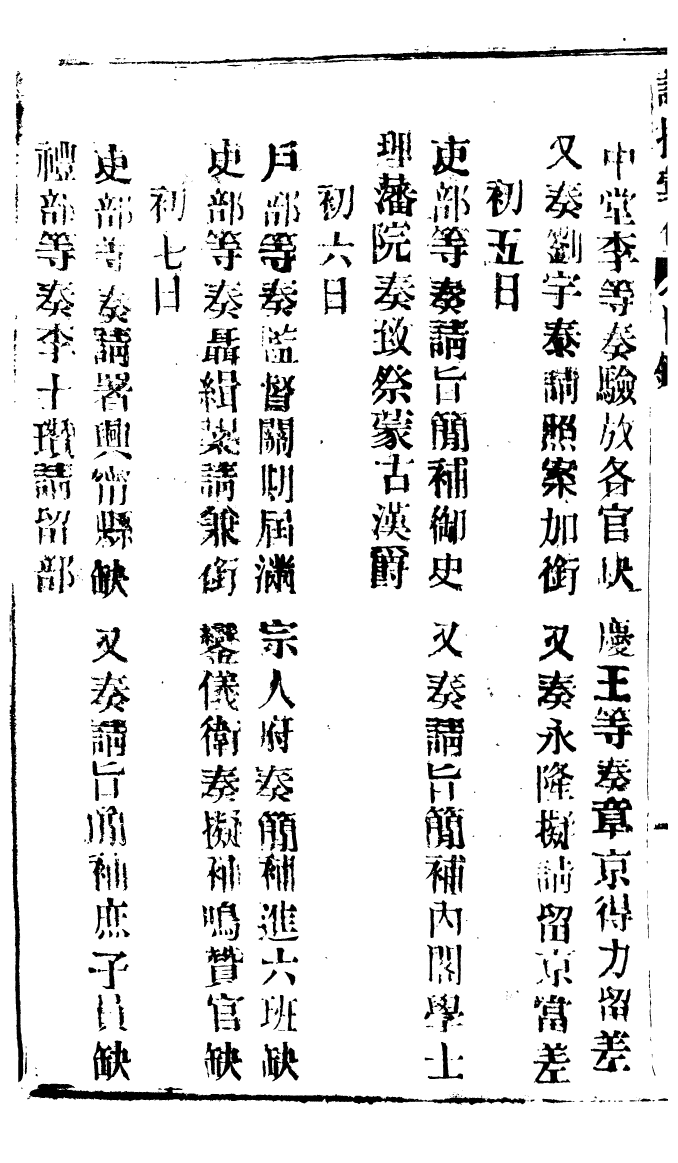 中堂李等奏驗放各官缺　慶王等奏章京得力留差
又奏劉宇泰請照案加銜　又奏永隆擬請留京當差
初五日
吏部等奏請旨簡補御史　又奏請旨簡補內閣學士
理藩院奏致祭蒙古漢爵
初六日
戶部等奏監督關期屆滿　宗人府奏簡補進六班缺
吏部等奏聶緝槼請兼銜　鑾儀衛奏擬補鳴贊官缺
初七日
吏部等奏請署興甯縣缺　又奏請旨簡補庶子員缺
禮部等奏李士瓚請留部